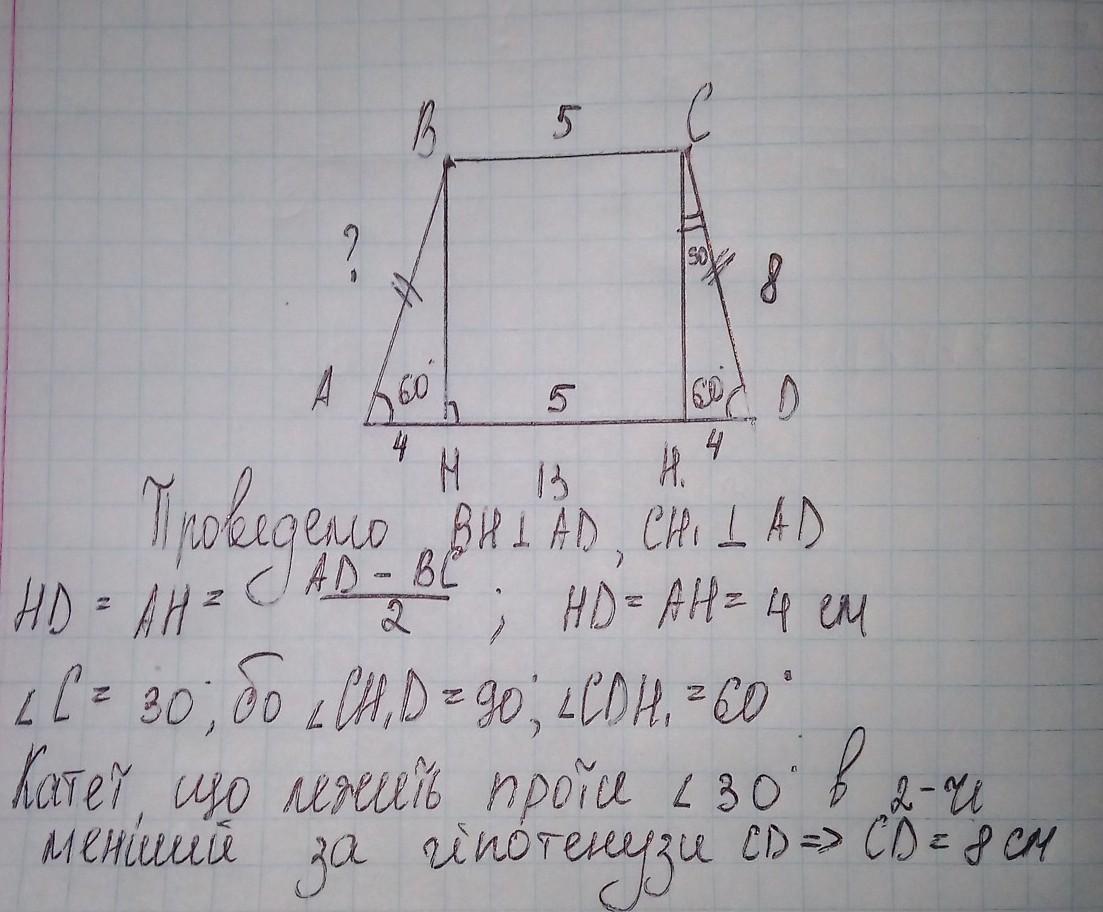 B 5 C
? 30 8
A 60° 5 60° D
4 H 13 H₁ 4
Проведемо BH⊥AD, CH₁ ⊥ AD
HD = AH = AD - BC / 2 ; HD = AH = 4 см
∠C = 30°, бо ∠CH₁D = 90°, ∠CDH₁ = 60°
Катет, що лежить проти ∠30° в 2-чи
менший за гіпотенузи CD => CD = 8 см